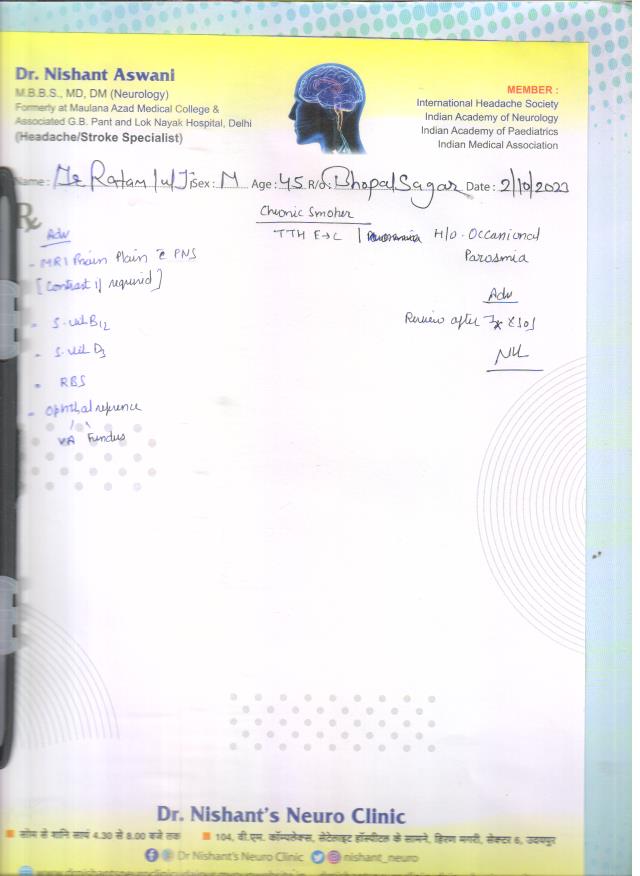 Dr. Nishant Aswani
M.B.B.S., MD, DM (Neurology)
Formerly at Maulana Azad Medical College &
Associated G.B. Pant and Lok Nayak Hospital, Delhi
(Headache/Stroke Specialist)
MEMBER :
International Headache Society
Indian Academy of Neurology
Indian Academy of Paediatrics
Indian Medical Association
Name: Mr Ratan Sex: M Age: 45 R/o: Bhopal Sagar Date: 2/10/2023
Rx
Chronic Smoker
TTH E→C H/o. Occasional
Parosmia
Adv
- MRI Brain Plain c̄ PNS
[Contrast if required]
- S. vit B12
- S. vit D3
- RBS
- Ophthal reference
VA Fundus
Adv
Review after
Dr. Nishant's Neuro Clinic
सोम से शनि सायं 4.30 से 8.00 बजे तक 104, वी.एम. कॉम्पलेक्स, सेटेलाइट हॉस्पीटल के सामने, हिरण मगरी, सेक्टर 6, उदयपुर
Dr Nishant's Neuro Clinic nishant_neuro